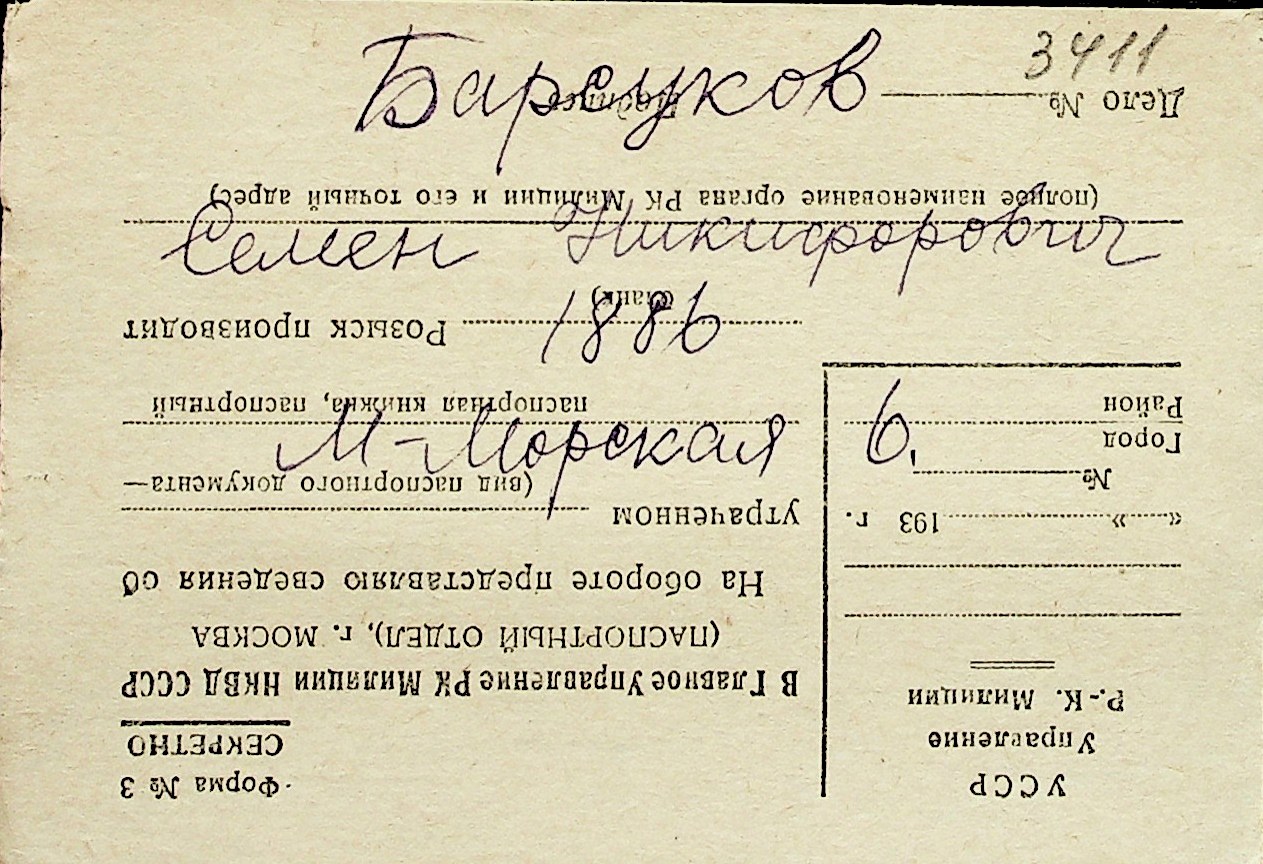 3411
Барсуков
Семен Никифорович
1886
М-Морская 6.
УССР
Управление
Р.-К. Милиции
« » 193 г.
№
Город
Район
Форма № 3
СЕКРЕТНО
В Главное Управление РК Милиции НКВД СССР
(ПАСПОРТНЫЙ ОТДЕЛ), г. МОСКВА
На обороте представляю сведения об
утраченном
(вид паспортного документа—
паспортная книжка, паспортный
бланк)
Розыск производит
(полное наименование органа РК Милиции и его точный адрес)
Дело № Подпись